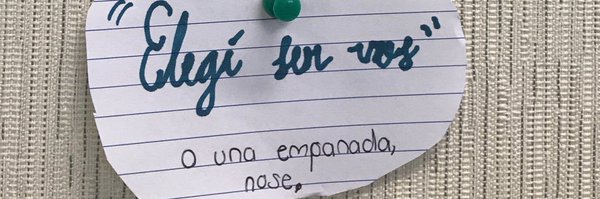 "Elegí ser vos"
o una empanada,
nose.